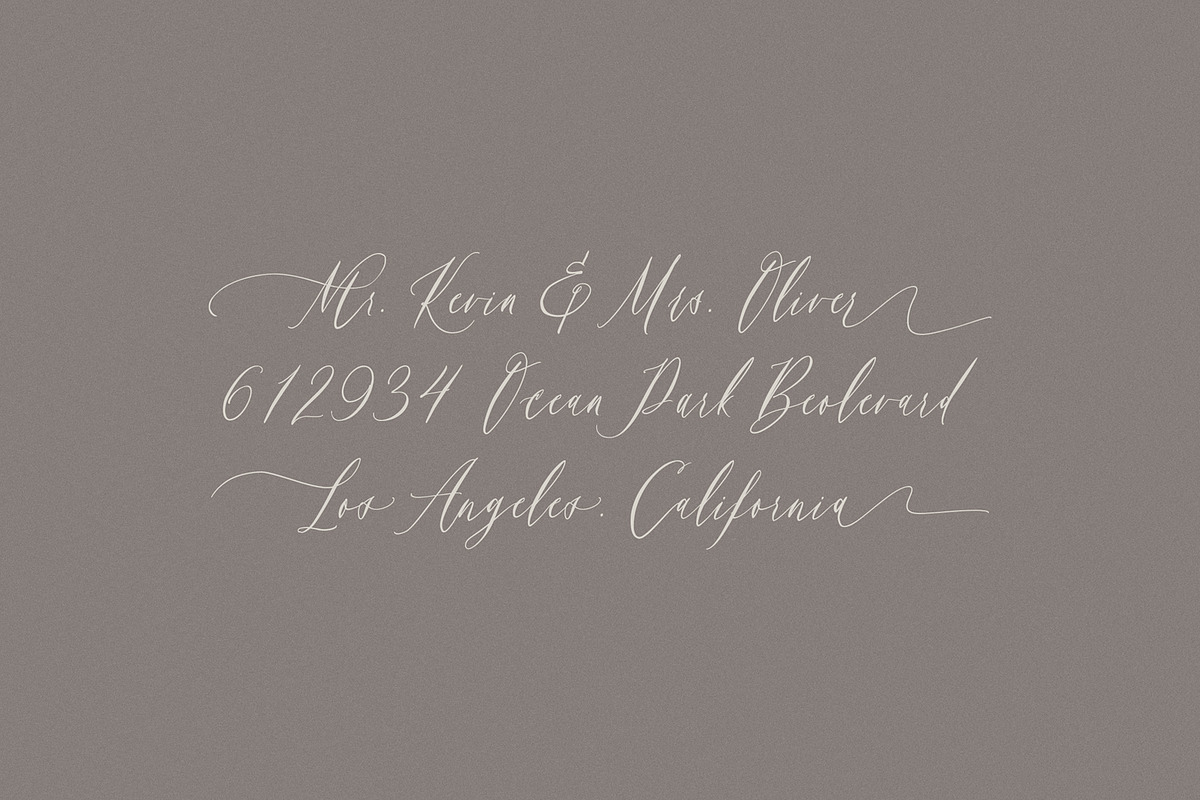 Mr. Kevin & Mrs. Oliver
612934 Ocean Park Beolevard
Los Angeles. California